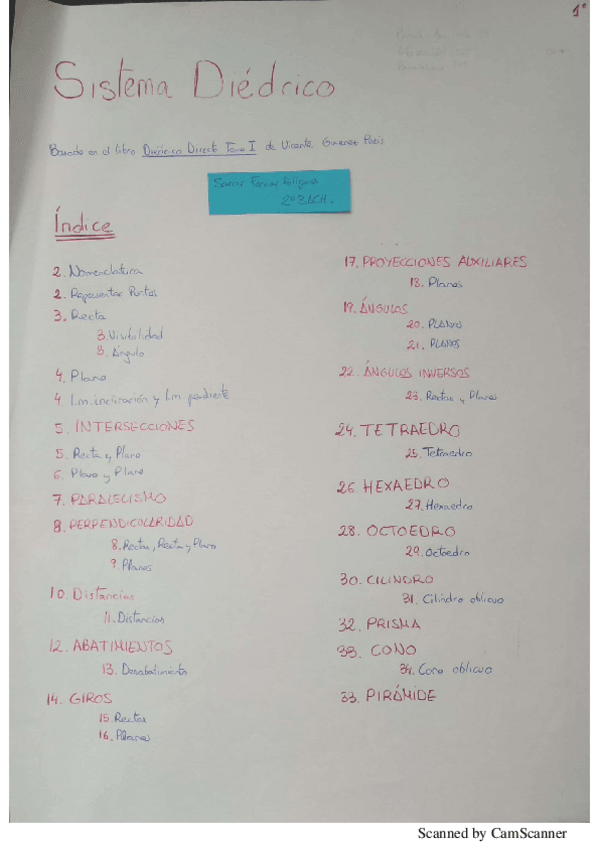 1º
Sistema Diédrico
Basado en el libro Diédrico Directo Tomo I de Vicente
2º BACH.
Índice
2. Nomenclatura
2. Representar Puntos
3. Recta
3. Visibilidad
3. Ángulo
4. Plano
4. Lm. inclinación y Lm. pendiente
5. INTERSECCIONES
5. Recta y Plano
6. Plano y Plano
7. PARALELISMO
8. PERPENDICULARIDAD
8. Rectas, Recta y Plano
9. Planos
10. Distancias
11. Distancias
12. ABATIMIENTOS
13. Desabatimiento
14. GIROS
15. Rectas
16. Planos
17. PROYECCIONES AUXILIARES
18. Planos
19. ÁNGULOS
20. PLANOS
21. PLANOS
22. ÁNGULOS INVERSOS
23. Rectas y Planos
24. TETRAEDRO
25. Tetraedro
26. HEXAEDRO
27. Hexaedro
28. OCTOEDRO
29. Octoedro
30. CILINDRO
31. Cilindro oblicuo
32. PRISMA
33. CONO
34. Cono oblicuo
33. PIRÁMIDE
Scanned by CamScanner